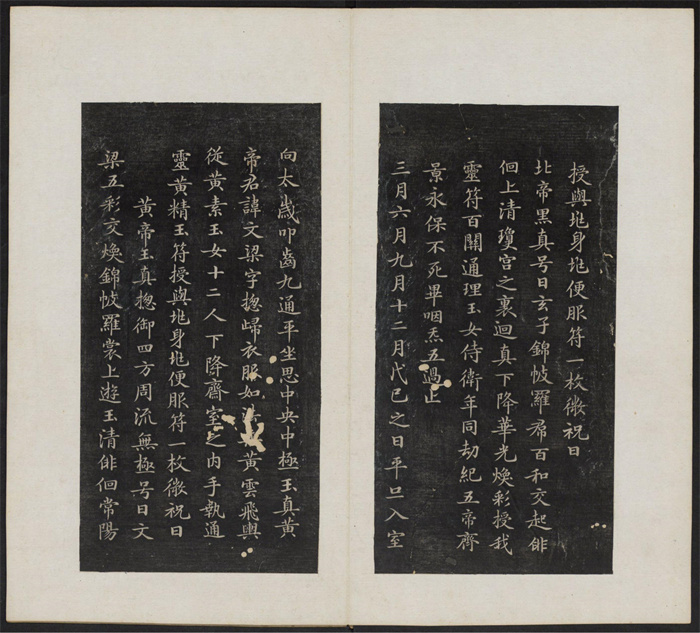 授與兆身兆便服符一枚微祝曰
北帝黑真号曰玄子錦帔羅帬百和交起俳
佪上清瓊宮之裏迴真下降華光煥彩授我
靈符百關通理玉女侍衛年同劫紀五帝齊
景永保不死畢咽炁五過止
三月六月九月十二月戊巳之日平旦入室
向太歲叩齒九通平坐思中央中極玉真黃
帝君諱文梁字揔歸衣服如黃雲飛輿
從黃素玉女十二人下降齋室之內手執通
靈黃精玉符授與兆身兆便服符一枚微祝曰
黃帝玉真揔御四方周流無極号曰文
梁五彩交煥錦帔羅裳上遊玉清俳佪常陽